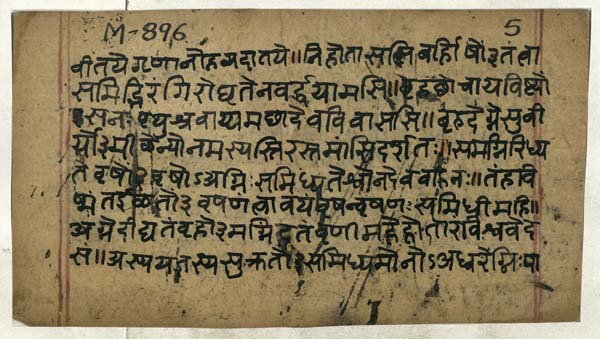 M-896 5
वीतयेगृणानोहव्यदातये॥निहोतासत्सिबर्हिषो३तंत्वा
समिद्भिरंगिरोघृतेनवर्द्धयामसि॥बृहछोचायविष्ठ्यो
सनःपृथुश्रवाय्यमछादेवविवाससि॥बृहदग्नेसुवी
र्यो३मीळेन्योनमस्यस्तिरस्तमांसिदर्शतः॥समग्निरिध्य
तेवृषो३वृषोऽअग्निःसमिध्यतेश्वोनदेववाहनः॥तंहवि
ष्मंतईळतो३वृषणंत्वावयंवृषन्वृषणःसमिधीमहि॥
अग्नेदीद्यतंबृहो३मग्निंदूतंवृणीमहेहोतारंविश्ववेद
सं॥अस्ययज्ञस्यसुक्रतो३समिध्यमानोऽअध्वरेग्निःपा